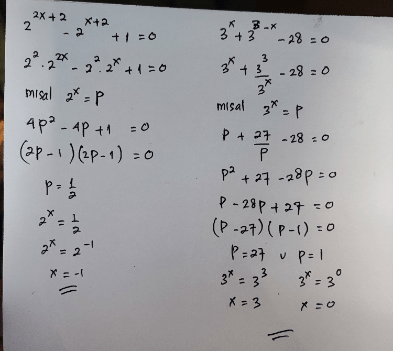 2^(2x+2) - 2^(x+2) + 1 = 0
2² · 2^(2x) - 2² · 2^x + 1 = 0
misal 2^x = p
4p² - 4p + 1 = 0
(2p - 1)(2p - 1) = 0
p = 1/2
2^x = 1/2
2^x = 2^-1
x = -1
3^x + 3^(3-x) - 28 = 0
3^x + 3³/3^x - 28 = 0
misal 3^x = p
p + 27/p - 28 = 0
p² + 27 - 28p = 0
p - 28p + 27 = 0
(p - 27)(p - 1) = 0
p = 27 v p = 1
3^x = 3³ 3^x = 3⁰
x = 3 x = 0